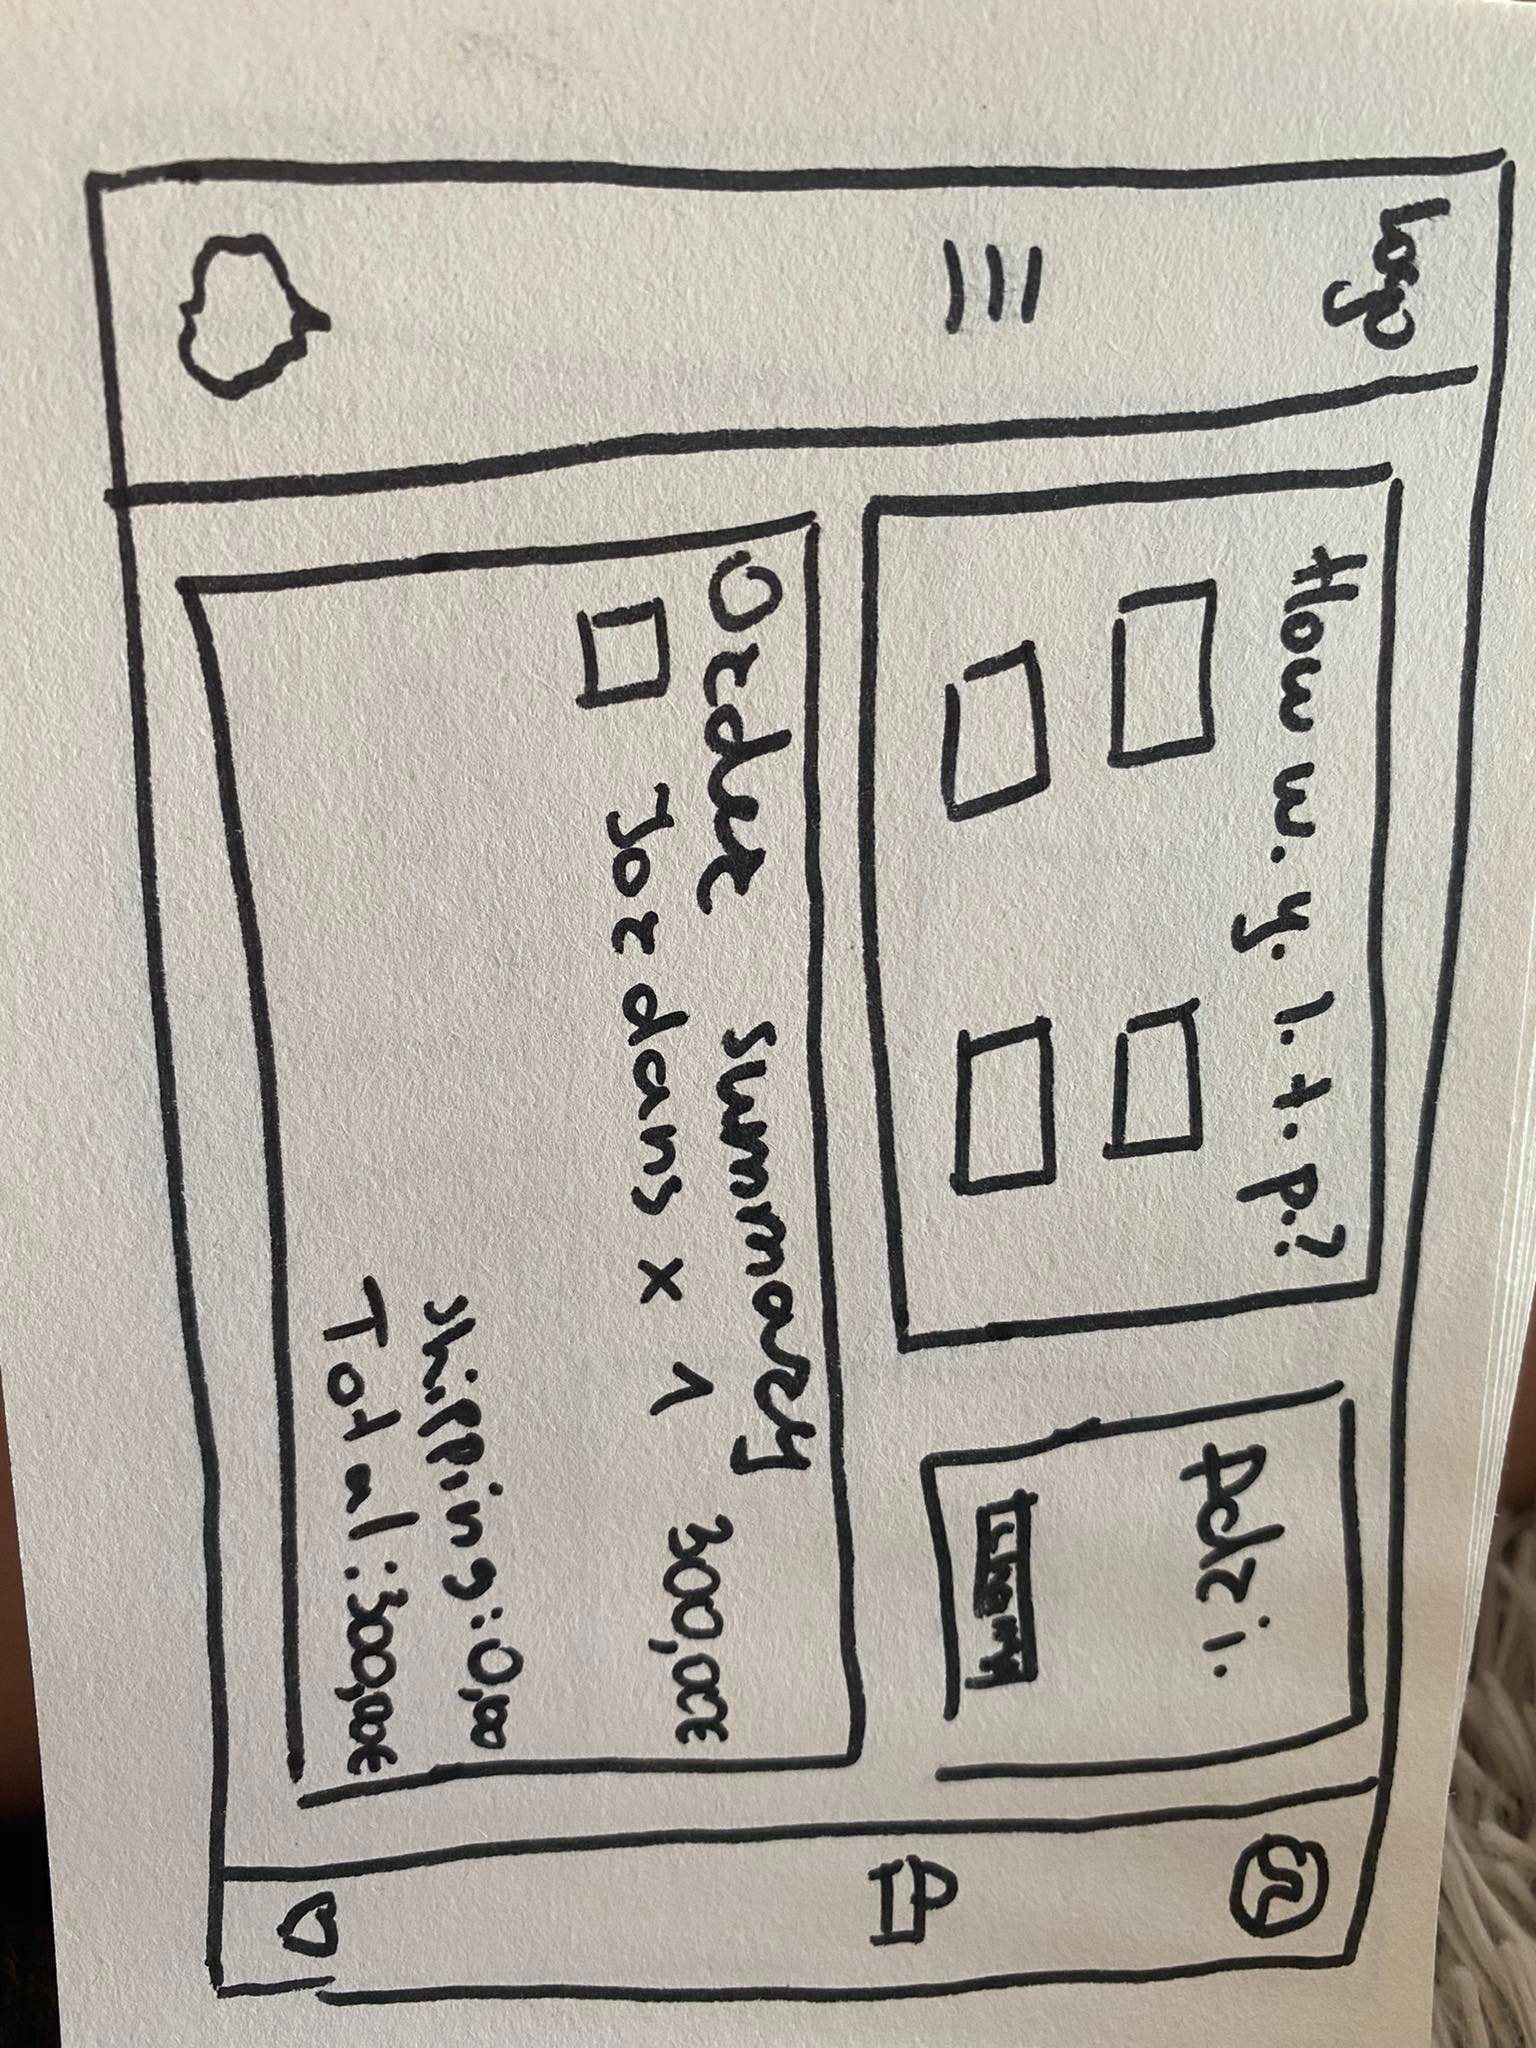 Logo
How w. y. l. t. p.?
Adr i.
Order summary
Jordans x 1 300,00€
Shipping: 0,00
Total: 300,00€